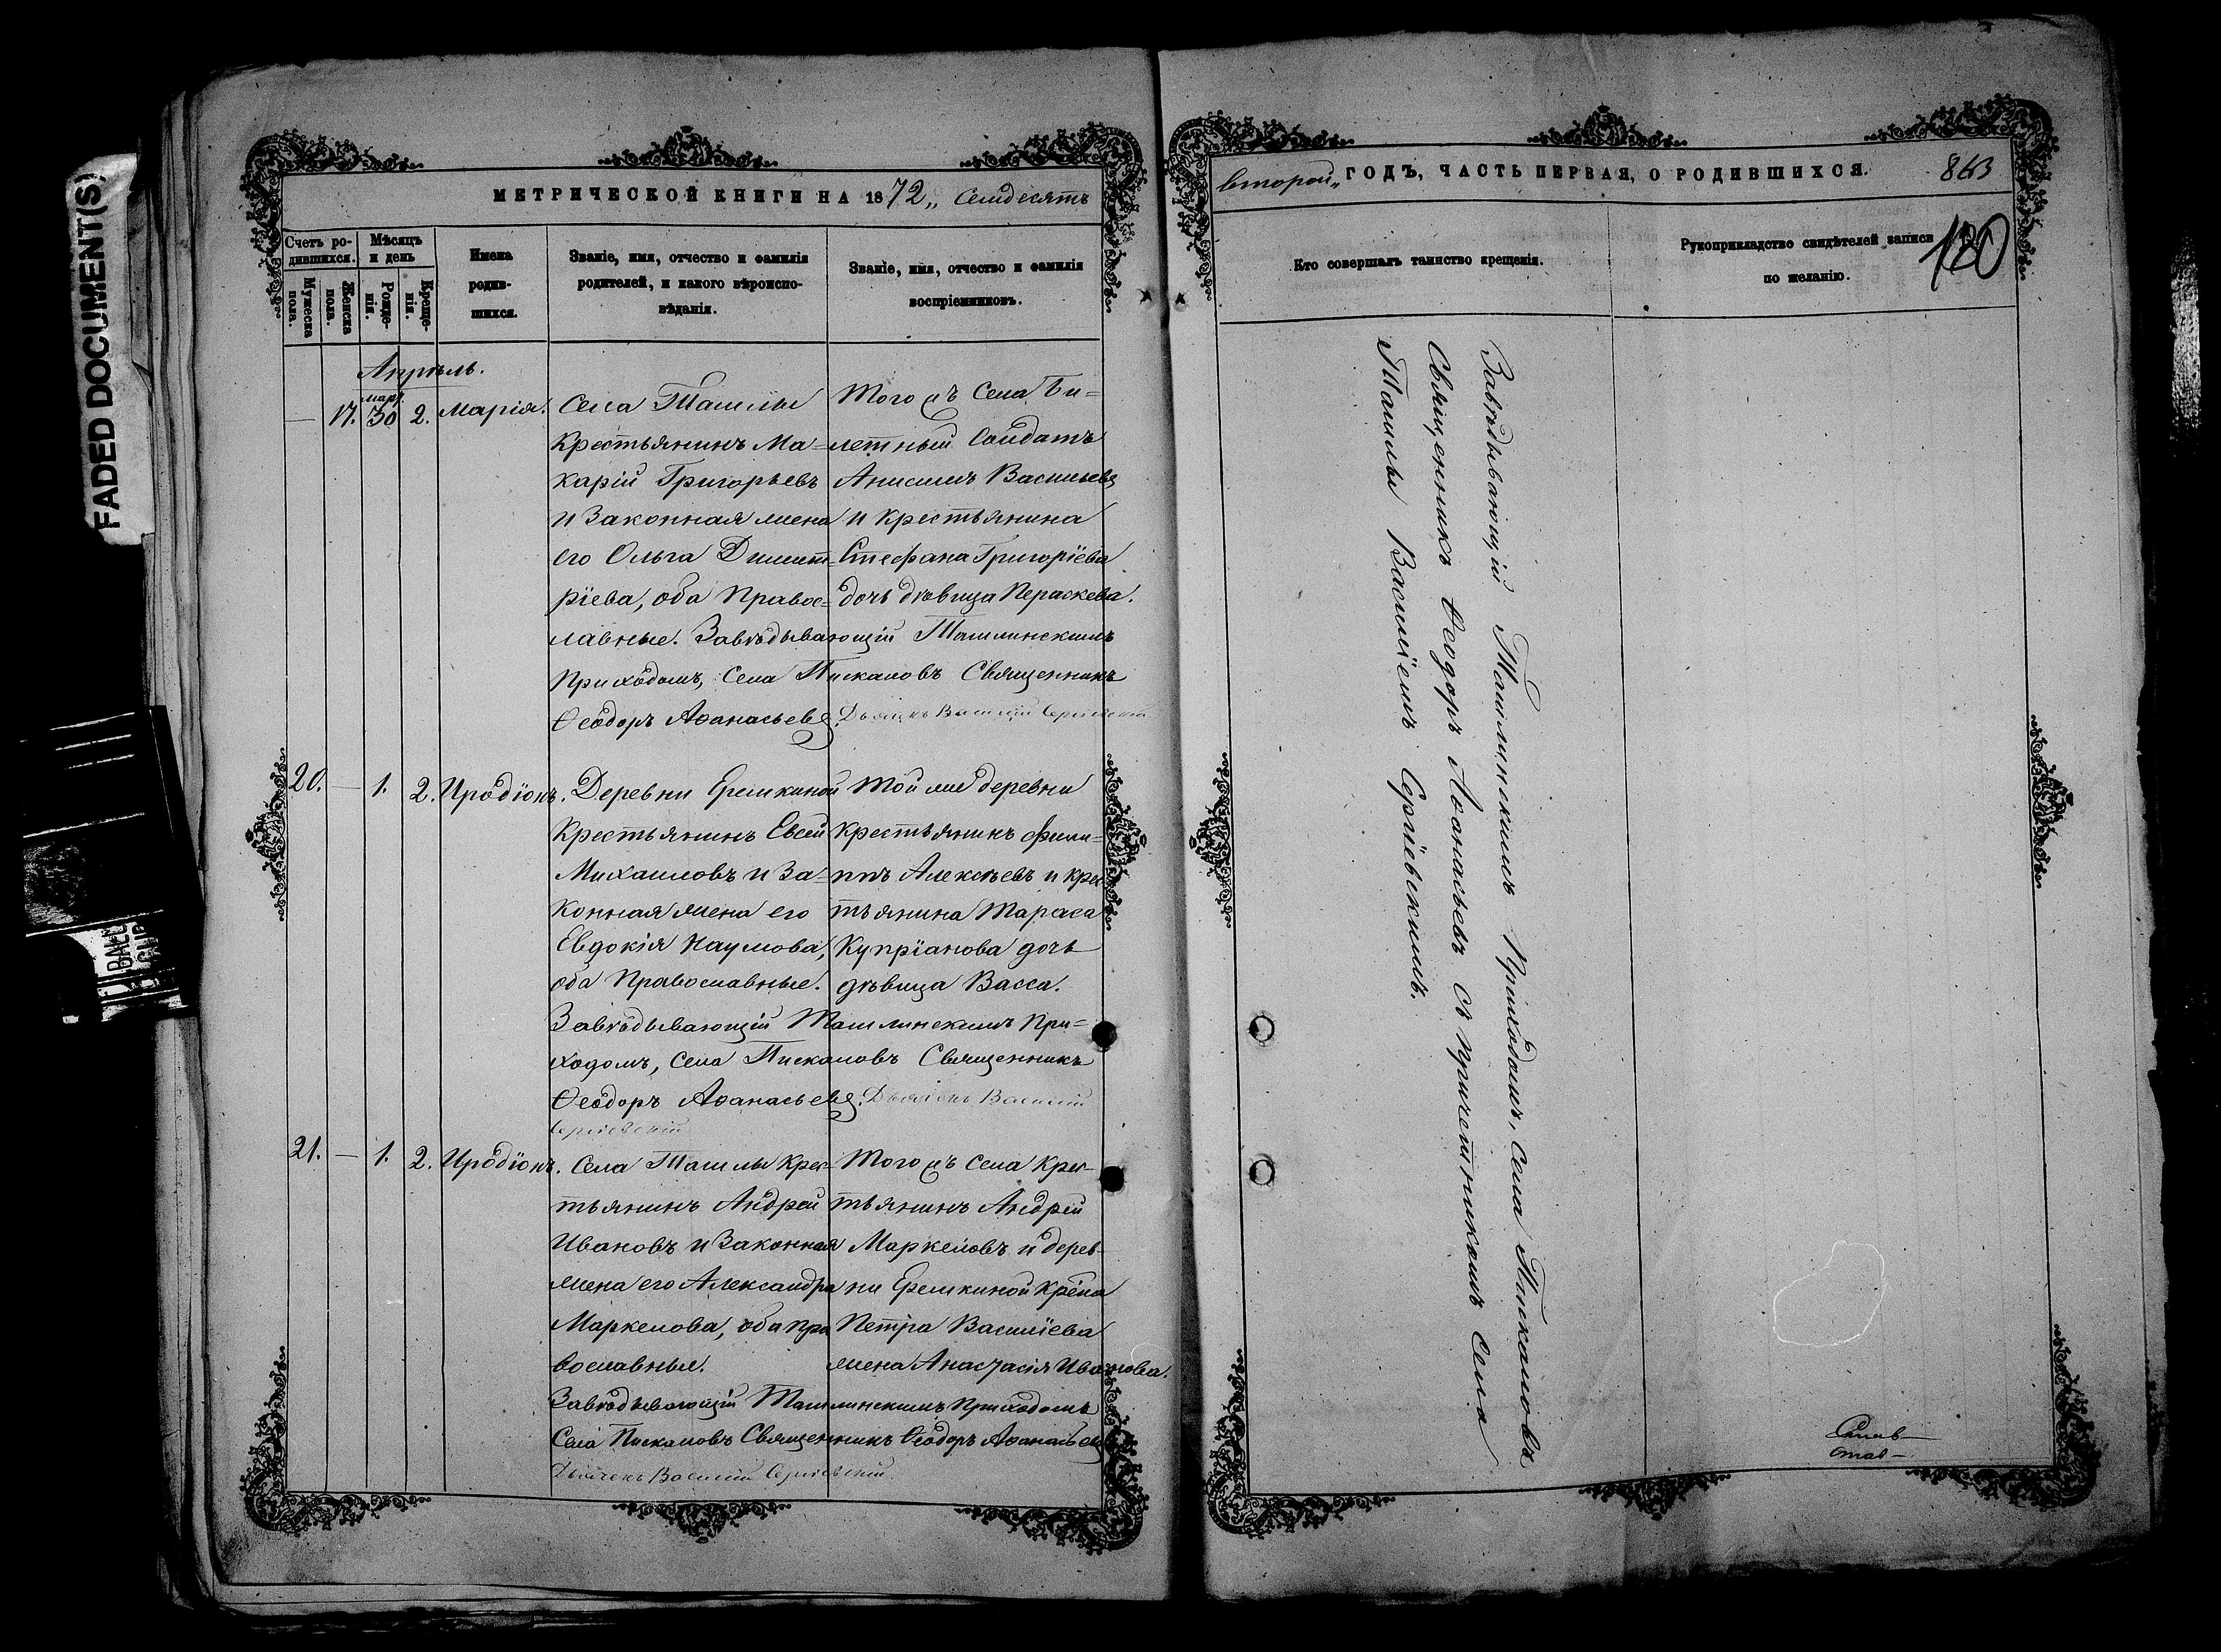 FADED DOCUMENT(S)
МЕТРИЧЕСКОЙ КНИГИ НА 1872„ Семдесятъ
Счетъ ро-
дившихся.
Мѣсяцъ
и день
Мужеска
пола.
Женска
пола.
Рожде-
нія.
Креще-
нія.
Имена
родив-
шихся.
Званіе, имя, отчество и фамилія
родителей, и какого вѣроиспо-
вѣданія.
Званіе, имя, отчество и фамилія
воспріемниковъ.
Апрѣль.
— 17. март. 30 2. Марія.
Села Ташлы
Крестьянинъ Ма-
карій Григорьевъ
и Законная жена
его Ольга Димит-
ріева, оба Правос=
лавные. Завѣдывающій Ташлинскимъ
Приходомъ, Села Пискаловъ Священникъ
Ѳеодоръ Аѳанасьевъ. Дьячекъ Василій Сергіевскій
Того жъ Села Би=
летный Солдатъ
Анисимъ Васильевъ
и Крестьянина
Стефана Григоріева
дочь дѣвица Параскева.
20. — 1. 2. Иродіонъ.
Деревни Еремкиной
Крестьянинъ Евсей
Михаиловъ и За=
конная жена его
Евдокія Наумова,
оба Православные.
Завѣдывающій Ташлинскимъ При=
ходомъ, Села Пискаловъ Священникъ
Ѳеодоръ Аѳанасьевъ. Дьячекъ Василій
Сергіевскій
Той же деревни
Крестьянинъ Фили=
ппъ Алексѣевъ и Крес
тьянина Тараса
Купріанова дочь
дѣвица Васса.
21. — 1. 2. Иродіонъ.
Села Ташлы Крес-
тьянинъ Андрей
Ивановъ и Законная
жена его Александра
Маркелова, оба Пра
вославные.
Завѣдывающій Ташлинскимъ Приходомъ
Села Пискаловъ Священникъ Ѳеодоръ Аѳанасьевъ
Дьячекъ Василій Сергіевскій.
Того жъ Села Крес-
тьянинъ Андрей
Маркеловъ и дерев-
ни Еремкиной Крестна
Петра Василіева
жена Анастасія Иванова.
второй„ ГОДЪ, ЧАСТЬ ПЕРВАЯ, О РОДИВШИХСЯ. 863
Кто совершалъ таинство крещенія.
Рукоприкладство свидѣтелей записи
по желанію.
180
Завѣдывающій Ташлинскимъ Приходомъ, Села Пискаловъ
Священникъ Ѳеодоръ Аѳанасьевъ съ причетникомъ Села
Ташлы Василіемъ Сергіевскимъ.